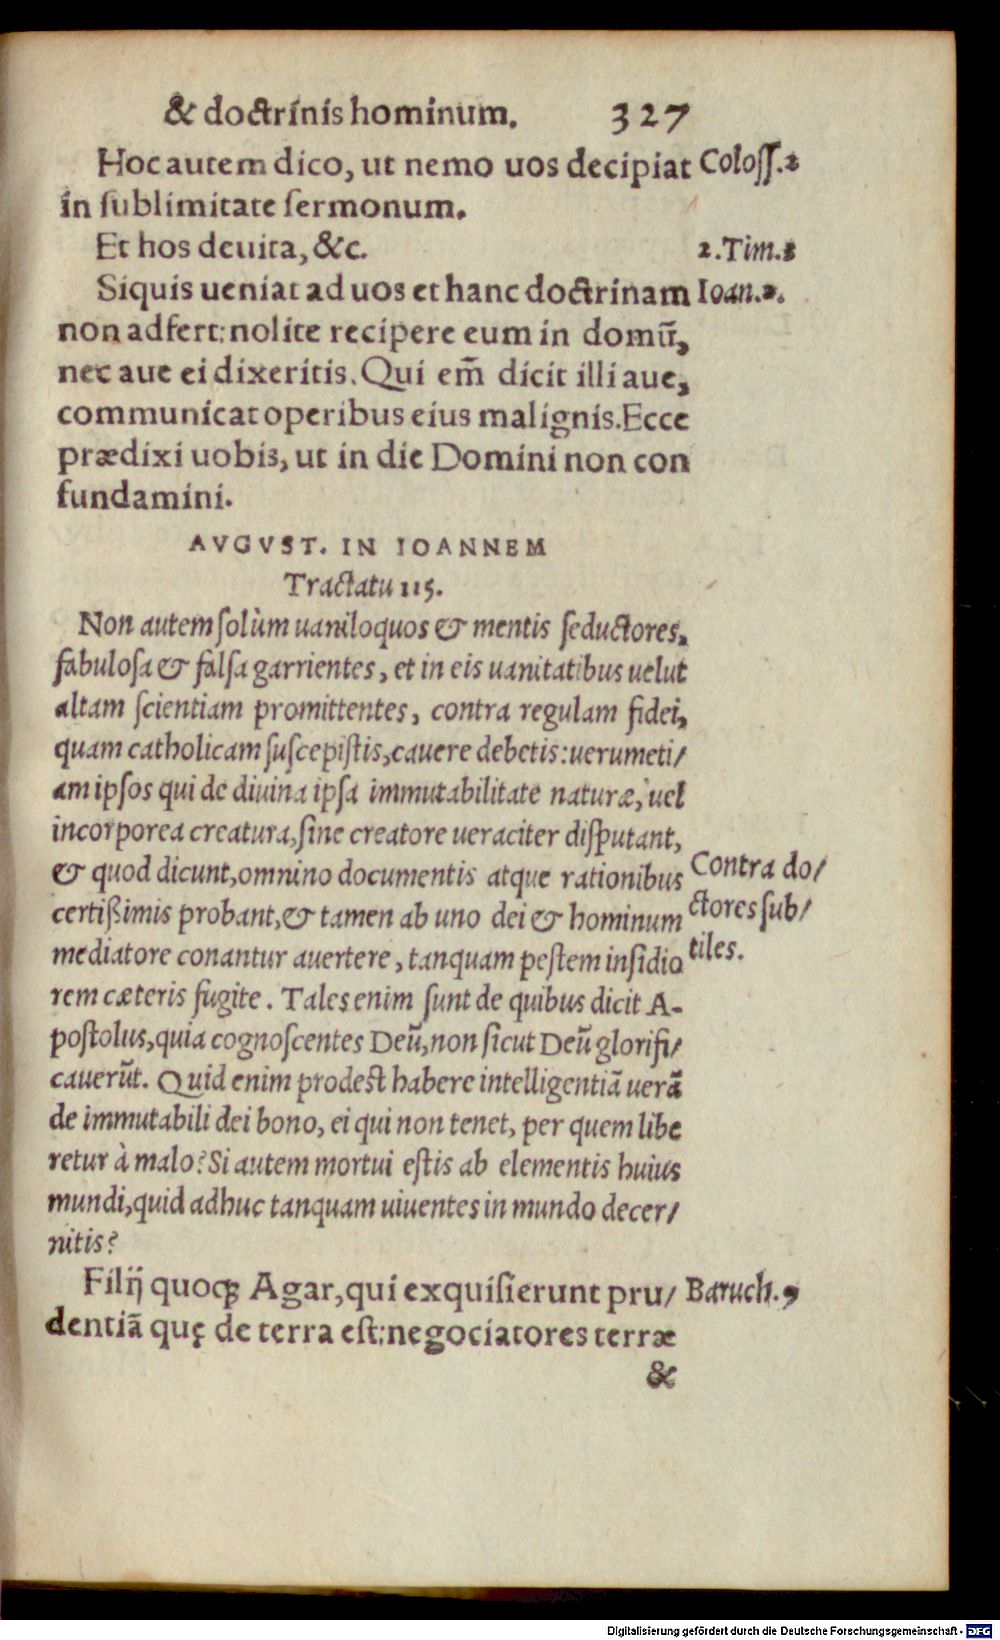 & doctrinis hominum. 327
Hoc autem dico, ut nemo uos decipiat Coloſſ.2
in ſublimitate ſermonum.
Et hos deuita, &c. 2.Tim.3
Siquis ueniat ad uos et hanc doctrinam Ioan.2.
non adfert: nolite recipere eum in domũ,
nec aue ei dixeritis. Qui em̃ dicit illi aue,
communicat operibus eius malignis. Ecce
prædixi uobis, ut in die Domini non con
fundamini.
AVGVST. IN IOANNEM
Tractatu 115.
Non autem ſolùm uaniloquos & mentis ſeductores,
fabuloſa & falſa garrientes, et in eis uanitatibus uelut
altam ſcientiam promittentes, contra regulam fidei,
quam catholicam ſuſcepiſtis, cauere debetis: uerumeti/
am ipſos qui de diuina ipſa immutabilitate naturæ, uel
incorporea creatura, ſine creatore ueraciter diſputant,
& quod dicunt, omnino documentis atque rationibus
certißimis probant, & tamen ab uno dei & hominum
mediatore conantur auertere, tanquam peſtem inſidio
rem cæteris fugite. Tales enim ſunt de quibus dicit A-
poſtolus, quia cognoſcentes Deũ, non ſicut Deũ glorifi/
cauerũt. Quid enim prodeſt habere intelligentiã uerã
de immutabili dei bono, ei qui non tenet, per quem libe
retur à malo? Si autem mortui eſtis ab elementis huius
mundi, quid adhuc tanquam uiuentes in mundo decer/
nitis?
Contra do/
ctores ſub/
tiles.
Filij quoqꝫ Agar, qui exquiſierunt pru/ Baruch.3
dentiã quę de terra eſt: negociatores terræ
&
Digitalisierung gefördert durch die Deutsche Forschungsgemeinschaft - DFG